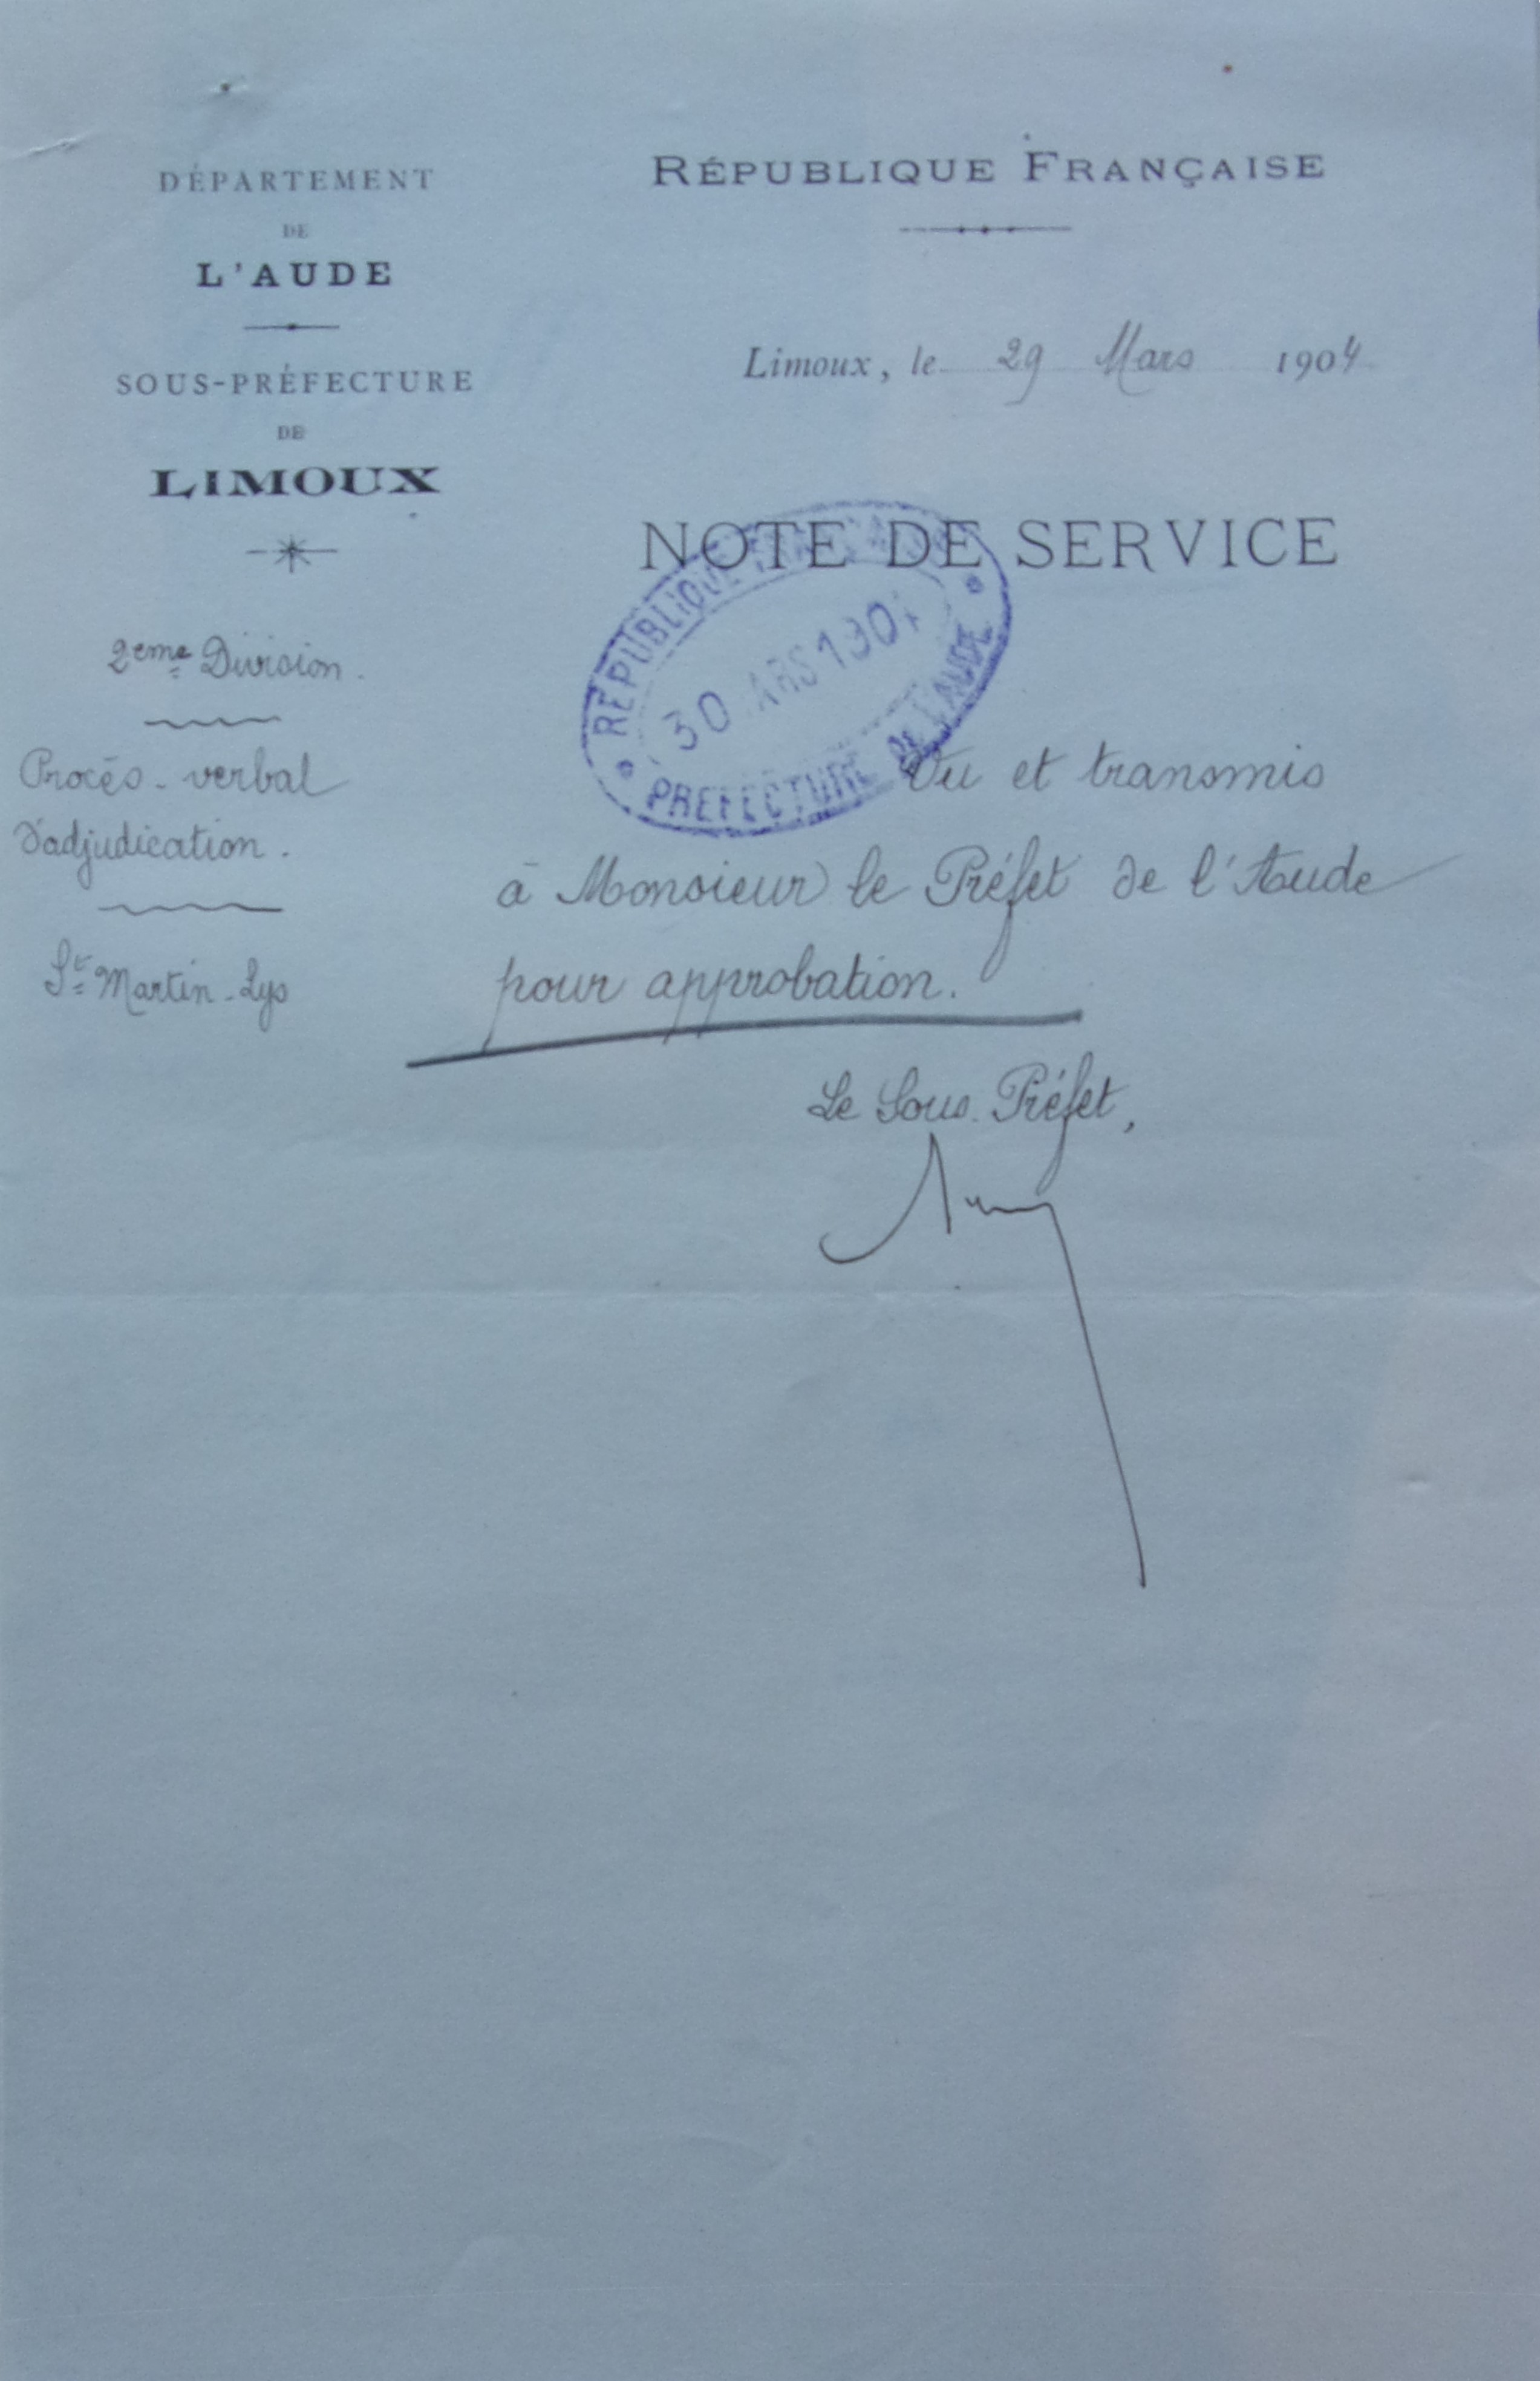 DÉPARTEMENT
DE
L'AUDE
SOUS-PRÉFECTURE
DE
LIMOUX
2eme Division.
Procès-verbal
d'adjudication.
St Martin-Lys
RÉPUBLIQUE FRANÇAISE
Limoux, le 29 Mars 1904
NOTE DE SERVICE
RÉPUBLIQUE FRANÇAISE
30 MARS 1904
PREFECTURE DE L'AUDE
Vu et transmis
à Monsieur le Préfet de l'Aude
pour approbation.
Le Sous-Préfet,